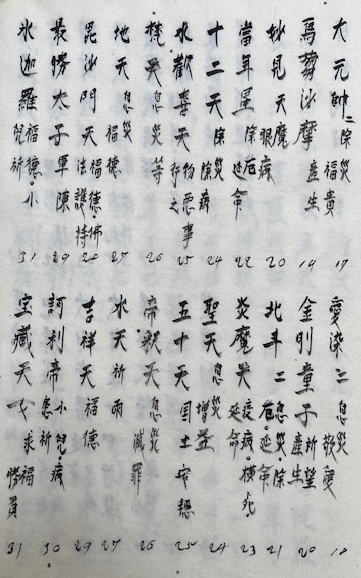 大元帥 除災 福貴 17
烏芻沙摩 産生 19
妙見天 魔 眼病 20
當年星 除厄 延命 22
十二天 除病 除災 24
水歓喜天 物悪事 行之 25
梵天 息災等 26
地天 息災 福徳 27
毘沙門天 福徳・佛法護持 28
最勝太子 軍陳 29
氷迦羅 福徳・小兒祈 31
愛染 息災 敬愛 18
金剛童子 所望 産生 20
北斗 息災 除厄・延命 21
炎魔天 疫病・横死 延命 23
聖天 息災 増益 24
五十天 国土安穏 25
帝釈天 息災 滅罪 26
水天 祈雨 27
吉祥天 福徳 29
訶利帝 小兒・病患祈 30
宝蔵天女 求福 31